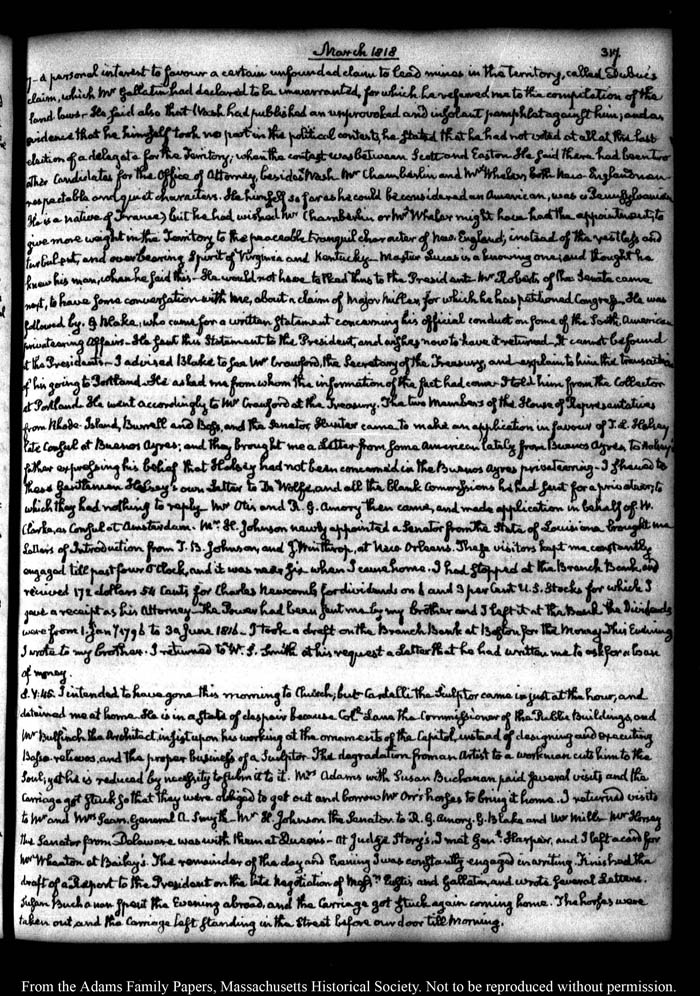 March 1818 317
7— a personal interest to favour a certain unfounded claim to lead mines in the Territory, called Dubuc's
claim, which Mr Gallatin had declared to be unwarranted, for which he referred me to the compilation of the
land laws— He said also that Nash had published an unprovoked and insolent pamphlet against him; and as
evidence that he himself took no part in the political contests, he stated that he had not voted at all at the last
election of a delegate for the Territory; when the contest was between Scott and Easton. He said there had been two
other Candidates for the Office of Attorney, besides Nash Mr Chamberlin and Mr Wheler, both New-England men
respectable and quiet characters. He himself so far as he could be considered an American, was a Pennsylvanian
(He is a native of France) but he had wished Mr Chamberlin or Mr Wheler might have had the appointment, to
give more weight in the Territory to the peaceable tranquil character of New England, instead of the restless and
turbulent, and overbearing Spirit of Virginia and Kentucky— Master Lucas is a knowing one; and thought he
knew his man, when he said this— He would not have to the President— Mr Roberts of the Senate came
next, to have some conversation with me, about a claim of Major Miller, for which he has petitioned Congress. He was
followed by G Blake, who came for a written statement concerning his official conduct on some of the South, American
privateering Affairs— He sent this Statement to the President, and wishes now to have it returned— It cannot be found
at the President's— I advised Blake to see Mr Crawford, the Secretary of the Treasury, and explain to him the transaction
of his going to Portland. He asked me from whom the information of the fact had come— I told him from the Collector
at Portland. He went accordingly to Mr Crawford at the Treasury. The two Members of the House of Representatives
from Rhode-Island, Burrell and Boss, and the Senator Hunter came to make an application in favour of T. L. Halsey
late Consul at Buenos Ayres; and they brought me a Letter from some American lately from Buenos Ayres, to Halsey's
father expressing his belief that Halsey had not been concerned in the Buenos Ayres privateering— I shewed to
these Gentlemen Halsey's own Letter to De Wolfe, and all the blank Commissions he had sent for a privateer; to
which they had nothing to reply. Mr Otis and R. G. Amory then came, and made application in behalf of W.
Clarke, as Consul at Amsterdam. Mr. H. Johnson newly appointed a Senator from the State of Louisiana brought me
Letters of Introduction from T. B. Johnson, and J. Winthrop, at New Orleans. These visitors kept me constantly
engaged till past four O'Clock, and it was near six when I came home. I had stopped at the Branch Bank, and
received 172 dollars 54 Cents for Charles Newcomb for dividends on 6 and 3 per Cent U.S. Stocks for which I
gave a receipt as his Attorney— The Power had been sent me by my brother and I left it at the Bank The Dividends
were from 1. Jany 1796 to 30 June 1816— I took a draft on the Branch Bank at Boston for the Money. This Evening
I wrote to my brother. I returned to W. S. Smith at his request a Letter that he had written me to ask for a loan
of money.
8. V:45. I intended to have gone this morning to Church; but Cardelli the Sculptor came in just at the hour, and
detained me at home. He is in a State of despair because Coll. Lane the Commissioner of the Public Buildings, and
Mr Bulfinch the Architect, insist upon his working at the ornaments of the Capitol, instead of designing and executing
Basso-relievos, and the proper business of a Sculptor. The degradation from an Artist to a workman cuts him to the
Soul; yet he is reduced by necessity to submit to it. Mrs Adams with Susan Buchanan, paid several visits and the
Carriage got stuck so that they were obliged to get out and borrow Mr Orr's horses to bring it home. I returned visits
to Mr and Mrs Sears, General A. Smyth— Mr H. Johnson the Senator to R. G. Amory. G. Blake and Mr Mills— Mr Horsey
the Senator from Delaware was with them at Queen's— At Judge Story's, I met Genl. Harper, and I left a card for
Mr Wharton at Bailey's. The remainder of the day and Evening I was constantly engaged in writing. Finished the
draft of a Report to the President on the late Negotiation of Messrs. Eustis and Gallatin, and wrote several Letters.
Susan Buchanan spent the Evening abroad, and the Carriage got stuck again coming home. The horses were
taken out, and the Carriage left standing in the Street before our door till Morning.
From the Adams Family Papers, Massachusetts Historical Society. Not to be reproduced without permission.